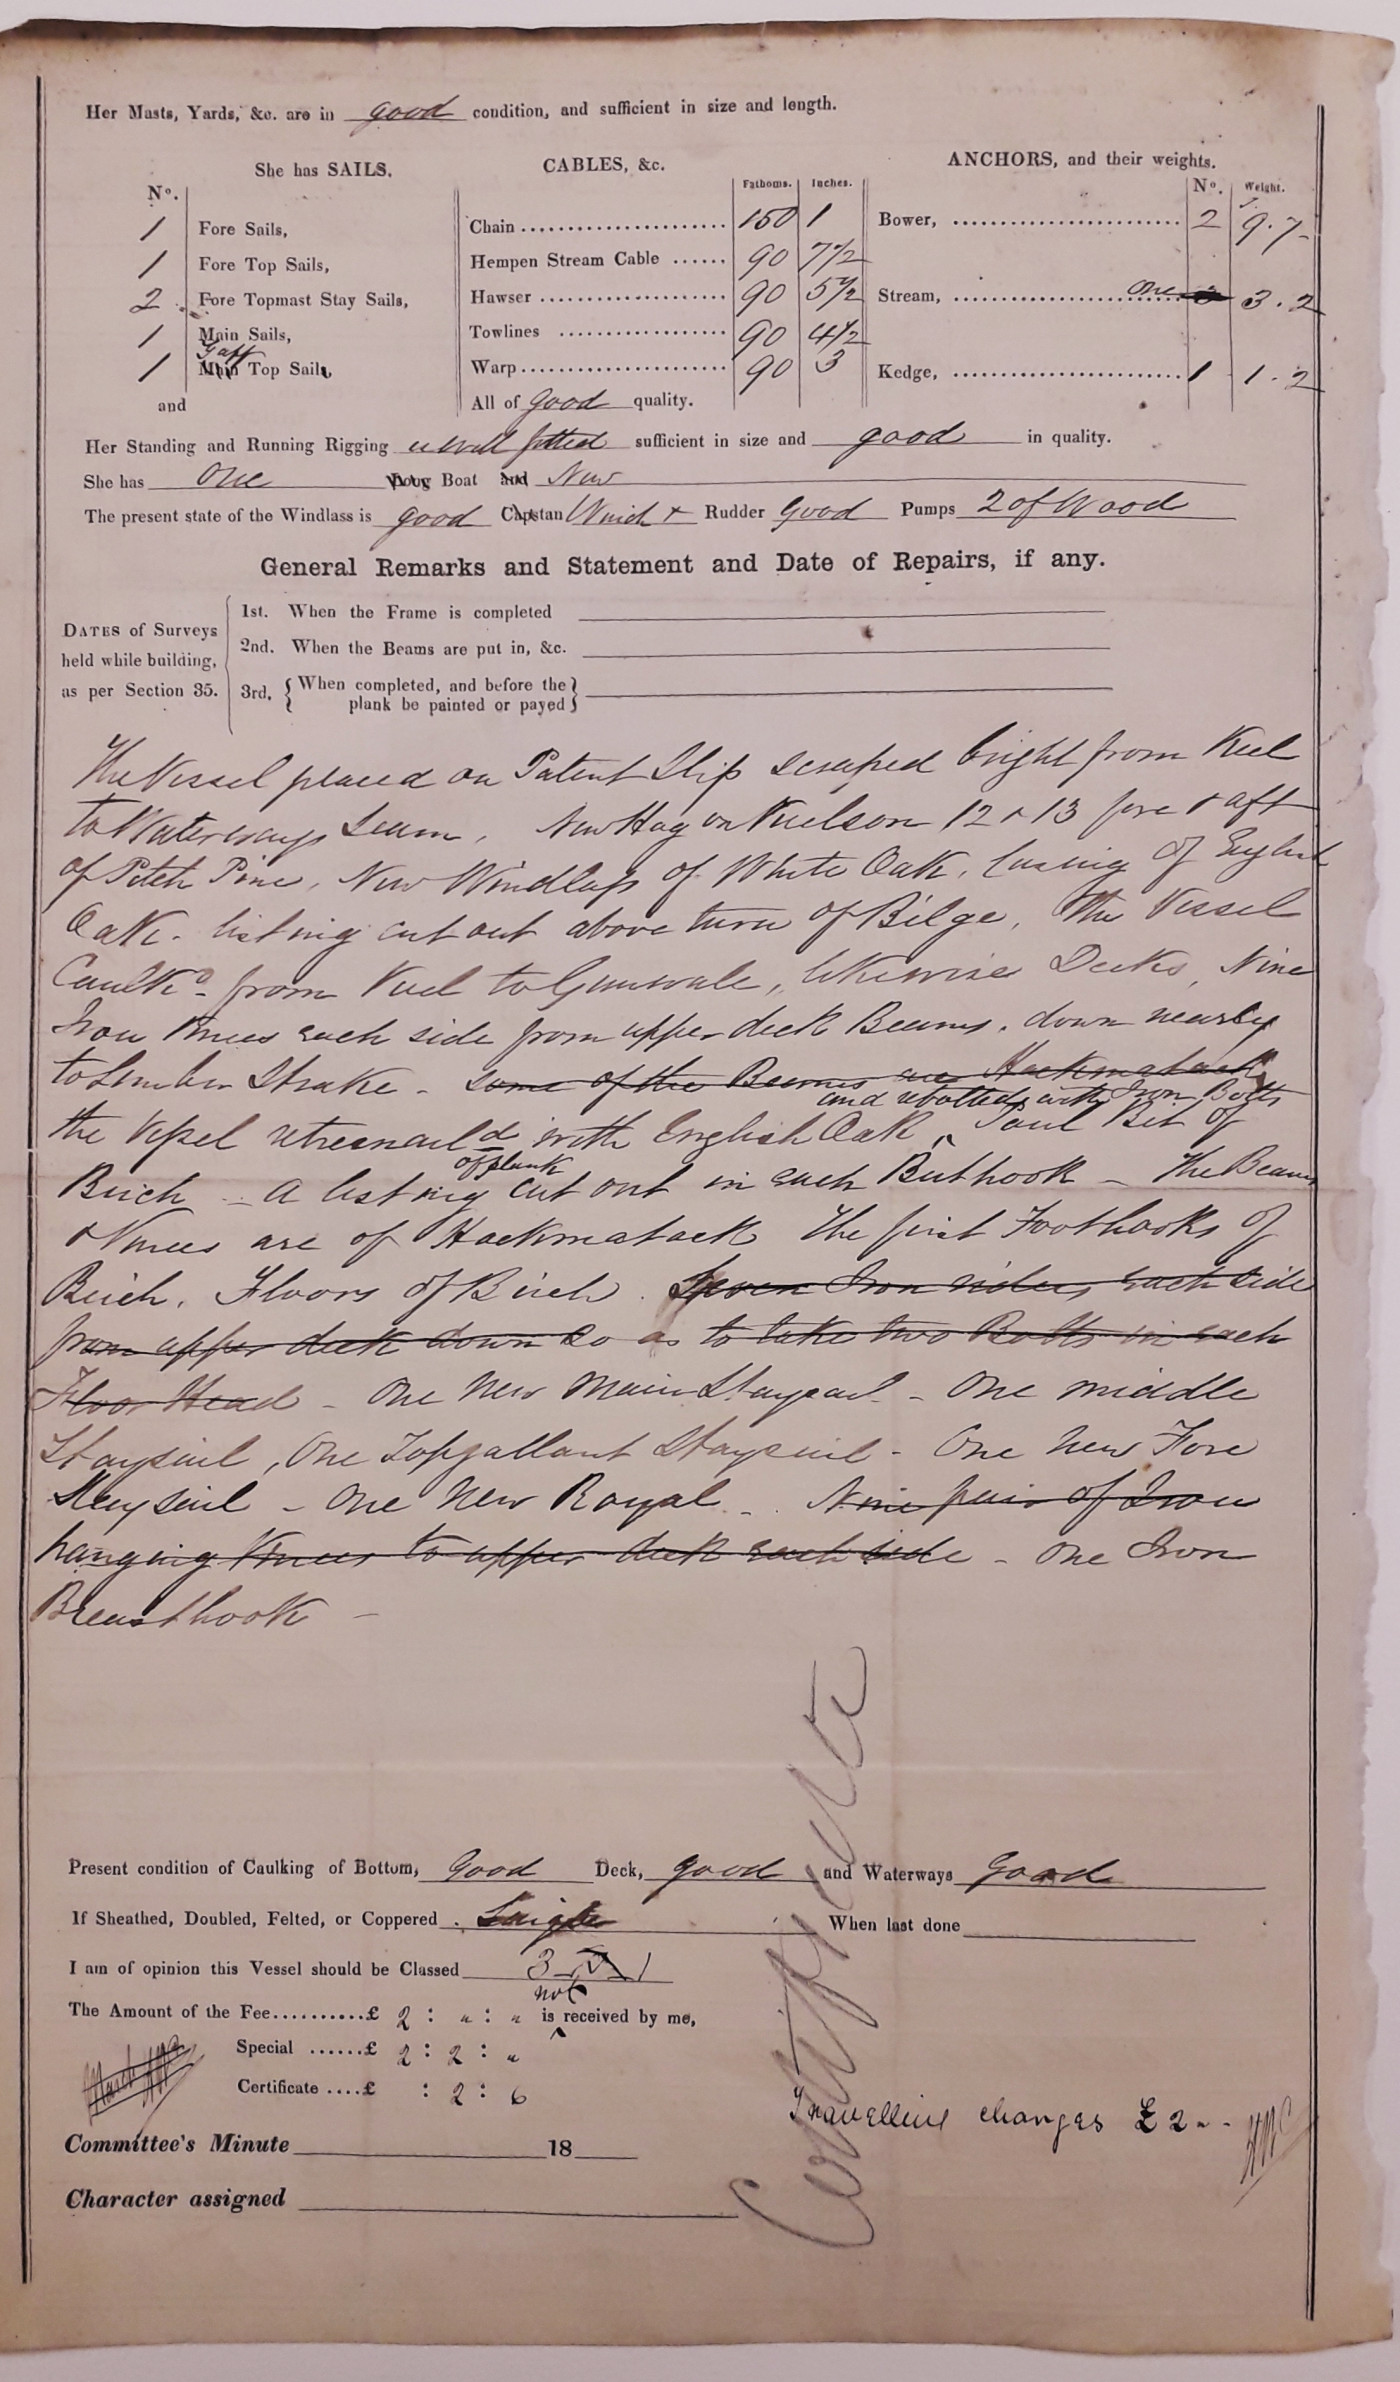 Her Masts, Yards, &c. are in good condition, and sufficient in size and length.
She has SAILS.
CABLES, &c.
ANCHORS, and their weights.
No.
Fathoms.
Inches.
No.
Weight.
1 Fore Sails,
Chain 150 1
Bower, 2 9.7
1 Fore Top Sails,
Hempen Stream Cable 90 7½
2 Fore Topmast Stay Sails,
Hawser 90 5½
Stream, one 3.2
1 Main Sails,
Towlines 90 4½
Gaff
1 Main Top Sails,
Warp 90 3
Kedge, 1 1.2
and
All of good quality.
Her Standing and Running Rigging is well fitted sufficient in size and good in quality.
She has One Long Boat and New
The present state of the Windlass is good Capstan Winch + Rudder Good Pumps 2 of Wood
General Remarks and Statement and Date of Repairs, if any.
DATES of Surveys held while building, as per Section 35.
1st. When the Frame is completed
2nd. When the Beams are put in, &c.
3rd. When completed, and before the plank be painted or payed
The Vessel placed on Patent Slip scraped bright from Keel
to Waterways Seam, New Hag on Keelson 12 x 13 fore & aft
of Pitch Pine, New Windlass of White Oak, Casing of English
Oak - listing cut out above turn of Bilge, The Vessel
Caulkd from Keel to Gunwale, likewise Decks, Nine
Iron Knees each side from upper deck Beams. down nearly
to Limber Strake - some of the Beams are Hackmatack
and rebolted with Iron Bolts
the Vessel retreenaild with English Oak ^ Paul Bit of
of plank
Birch - A listing cut out in each Buthook - The Beams
& Knees are of Hackmatack The first Foothooks of
Birch. Floors of Birch. Seven Iron riders each side
from upper deck down so as to take two Bolts in each
Floor Head - One New Main Staysail - One middle
Staysail, One Topgallant Staysail - One New Fore
Staysail - One New Royal - Nine pair of Iron
hanging Knees to upper deck each side - One Iron
Breasthook -
Present condition of Caulking of Bottom, Good Deck, good and Waterways Good
If Sheathed, Doubled, Felted, or Coppered. When last done
I am of opinion this Vessel should be Classed 3 1
not
The Amount of the Fee £ 2 : " : " is ^ received by me,
Special £ 2 : 2 : "
Certificate £ : 2 : 6
Travelling charges £ 2 - -
Committee's Minute 18
Character assigned
Certificate